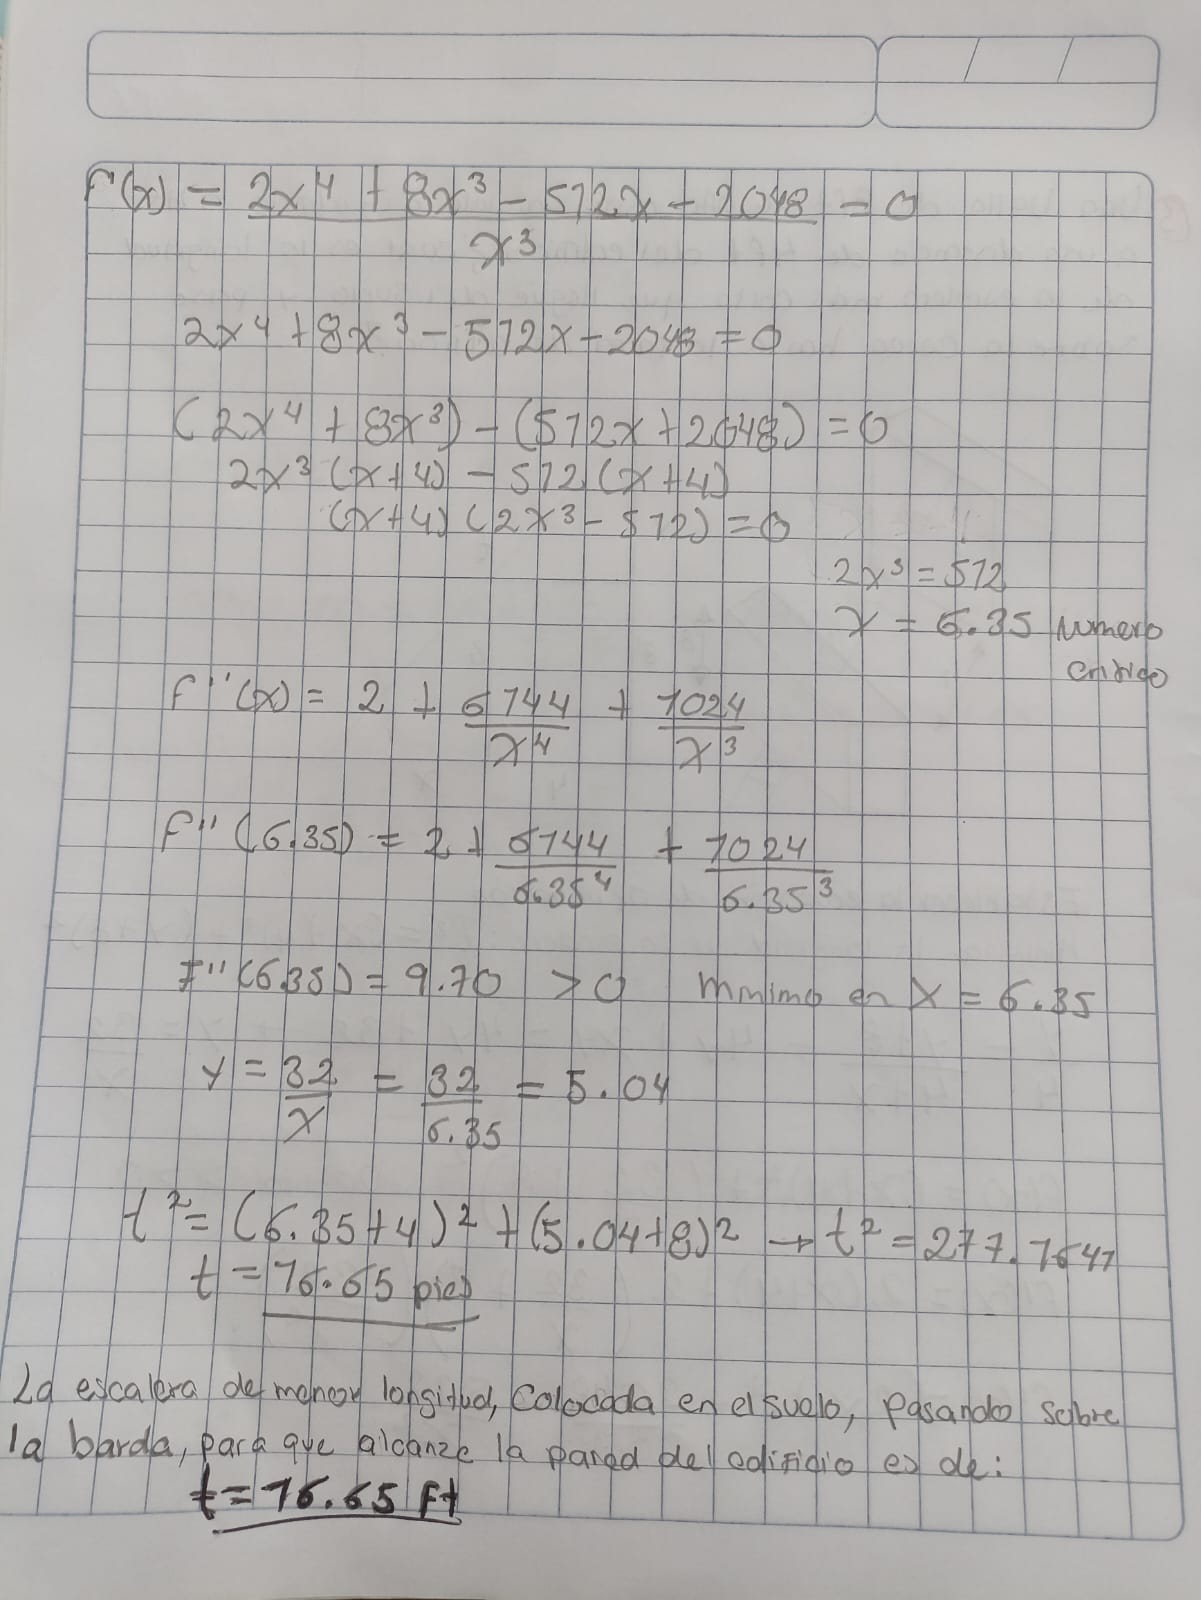 F'(x) = 2x⁴ + 8x³ - 512x - 2048 = 0
x³
2x⁴ + 8x³ - 512x - 2048 = 0
(2x⁴ + 8x³) - (512x + 2048) = 0
2x³ (x+4) - 512 (x+4)
(x+4) (2x³ - 512) = 0
2x³ = 512
x = 6.35 Numero
critico
F''(x) = 2 + 6144/x⁴ + 1024/x³
F''(6.35) = 2 + 6144/6.35⁴ + 1024/6.35³
F''(6.35) = 9.70 > 0 minimo en x = 6.35
y = 32/x = 32/6.35 = 5.04
t² = (6.35+4)² + (5.04+8)² → t² = 277.1641
t = 16.65 pies
La escalera de menor longitud, Colocada en el suelo, Pasando sobre
la barda, para que alcanze la pared del edificio es de:
t = 16.65 Ft